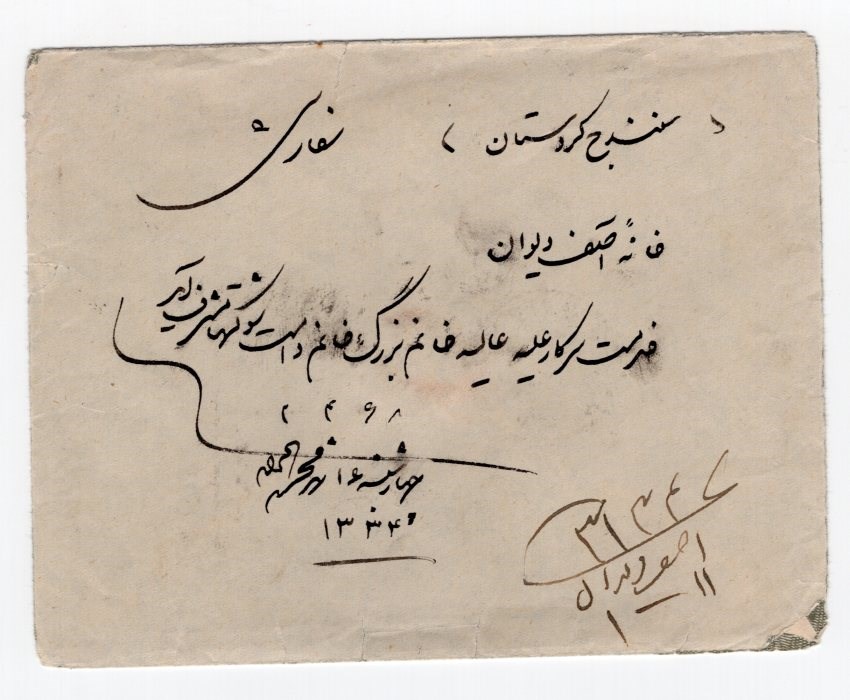 ( سنندج کردستان ) سفارشی
خانهٔ آصف دیوان
خدمت سرکار علیه عالیه خانم بزرگ خانم دامت شوکتها مشرف آید
۲ ۴ ۶ ۸
چهارشنبه ۱۶ شهر محرم الحرام
۱۳۳۴
اصف دیوان
۱۱
۱